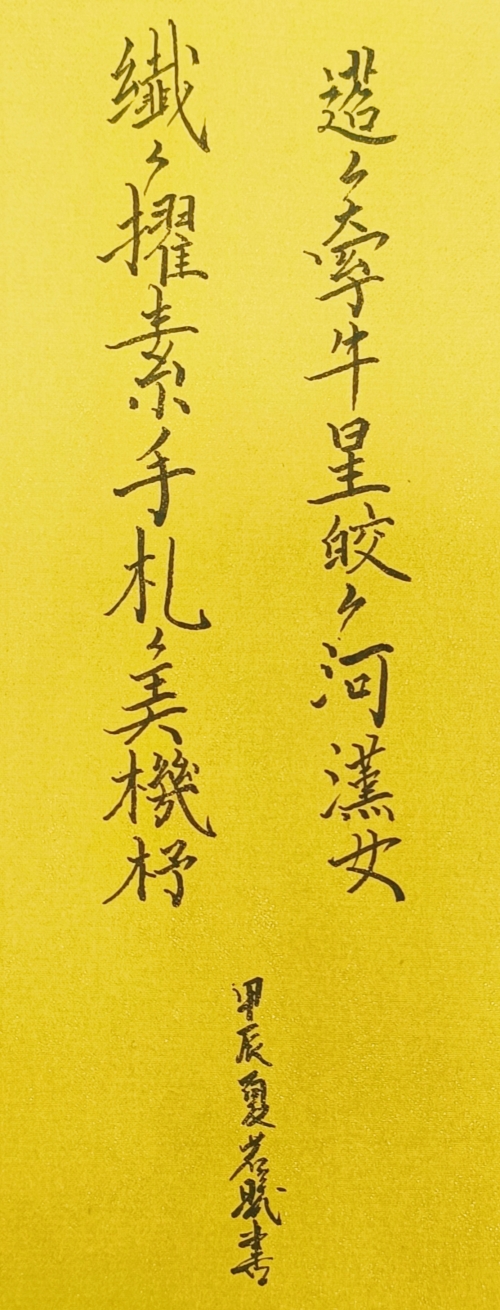 迢々牽牛星皎々河漢女
纖々擢素手札々弄機杼
甲辰夏若曦書